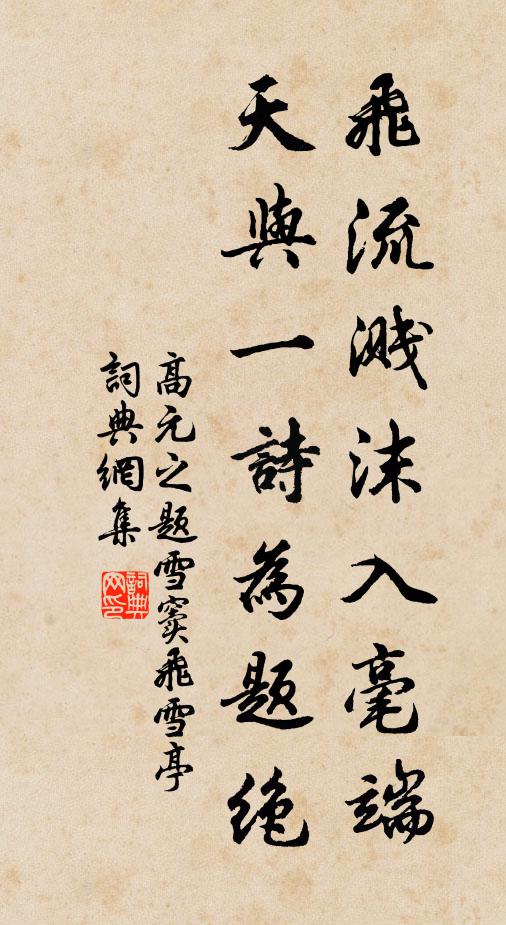 飛流濺沫入毫端
天與一詩為題絶
高元之题雪窦飛雪亭
詞典網集
詞典网印